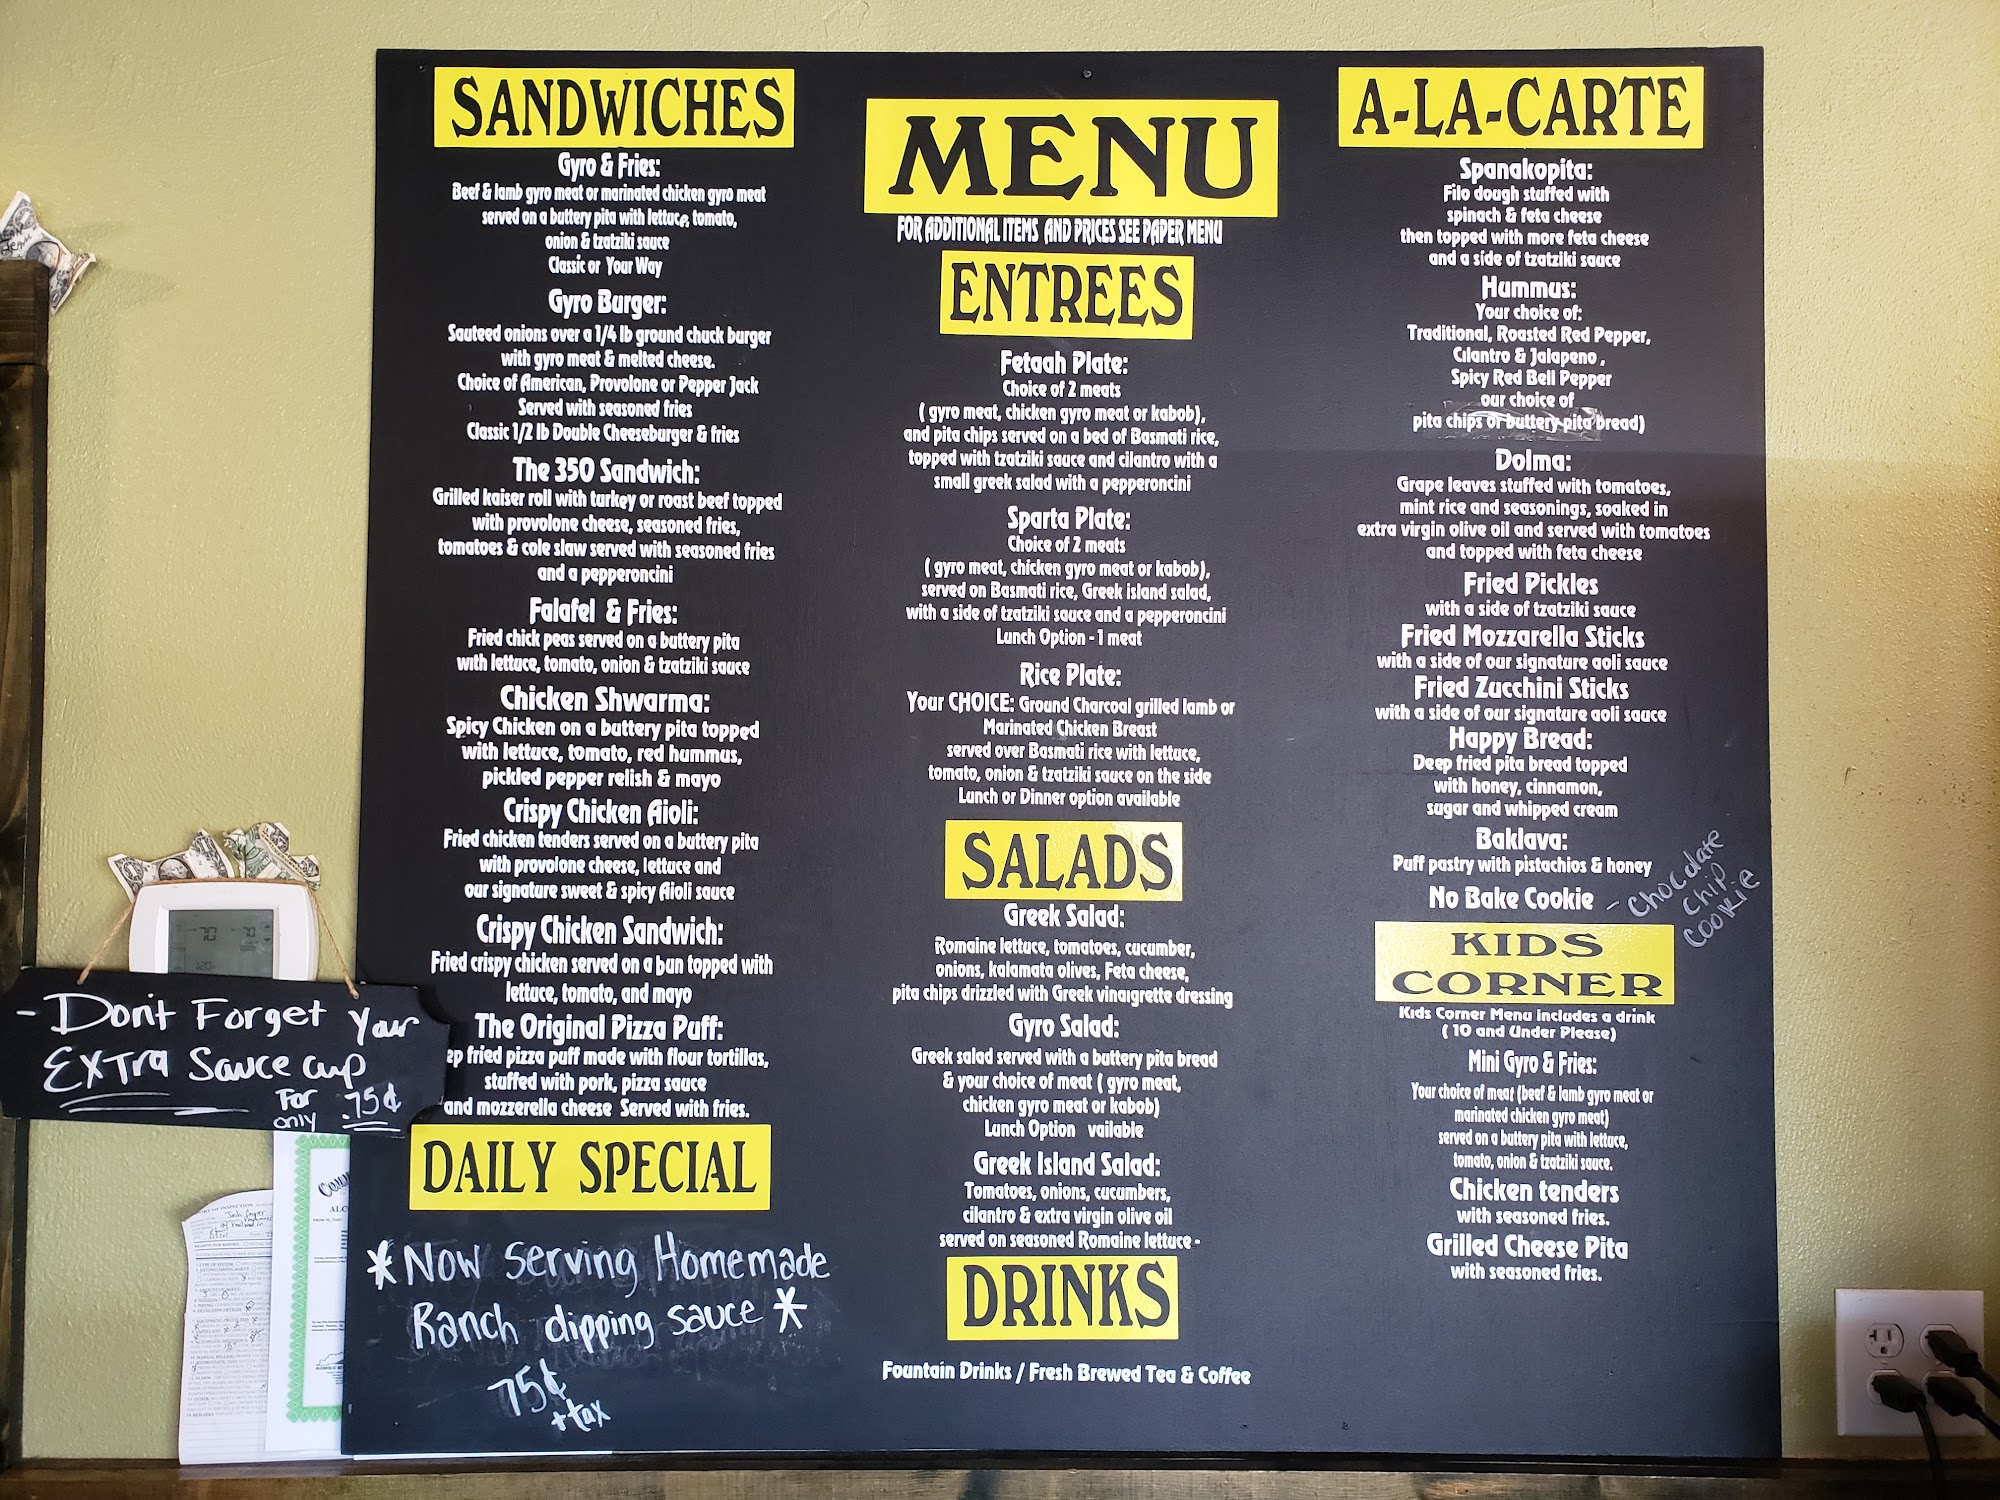 SANDWICHES
Gyro & Fries:
Beef & lamb gyro meat or marinated chicken gyro meat
served on a buttery pita with lettuce, tomato,
onion & tzatziki sauce
Classic or Your Way
Gyro Burger:
Sauteed onions over a 1/4 lb ground chuck burger
with gyro meat & melted cheese.
Choice of American, Provolone or Pepper Jack
Served with seasoned fries
Classic 1/2 lb Double Cheeseburger & fries
The 350 Sandwich:
Grilled kaiser roll with turkey or roast beef topped
with provolone cheese, seasoned fries,
tomatoes & cole slaw served with seasoned fries
and a pepperoncini
Falafel & Fries:
Fried chick peas served on a buttery pita
with lettuce, tomato, onion & tzatziki sauce
Chicken Shwarma:
Spicy Chicken on a buttery pita topped
with lettuce, tomato, red hummus,
pickled pepper relish & mayo
Crispy Chicken Aioli:
Fried chicken tenders served on a buttery pita
with provolone cheese, lettuce and
our signature sweet & spicy Aioli sauce
Crispy Chicken Sandwich:
Fried crispy chicken served on a bun topped with
lettuce, tomato, and mayo
The Original Pizza Puff:
ep fried pizza puff made with flour tortillas,
stuffed with pork, pizza sauce
and mozzerella cheese Served with fries.
DAILY SPECIAL
*Now Serving Homemade
Ranch dipping sauce *
75¢
+ tax
MENU
FOR ADDITIONAL ITEMS AND PRICES SEE PAPER MENU
ENTREES
Fetaah Plate:
Choice of 2 meats
( gyro meat, chicken gyro meat or kabob),
and pita chips served on a bed of Basmati rice,
topped with tzatziki sauce and cilantro with a
small greek salad with a pepperoncini
Sparta Plate:
Choice of 2 meats
( gyro meat, chicken gyro meat or kabob),
served on Basmati rice, Greek island salad,
with a side of tzatziki sauce and a pepperoncini
Lunch Option - 1 meat
Rice Plate:
Your CHOICE: Ground Charcoal grilled lamb or
Marinated Chicken Breast
served over Basmati rice with lettuce,
tomato, onion & tzatziki sauce on the side
Lunch or Dinner option available
SALADS
Greek Salad:
Romaine lettuce, tomatoes, cucumber,
onions, kalamata olives, Feta cheese,
pita chips drizzled with Greek vinaigrette dressing
Gyro Salad:
Greek salad served with a buttery pita bread
& your choice of meat ( gyro meat,
chicken gyro meat or kabob)
Lunch Option vailable
Greek Island Salad:
Tomatoes, onions, cucumbers,
cilantro & extra virgin olive oil
served on seasoned Romaine lettuce -
DRINKS
Fountain Drinks / Fresh Brewed Tea & Coffee
A-LA-CARTE
Spanakopita:
Filo dough stuffed with
spinach & feta cheese
then topped with more feta cheese
and a side of tzatziki sauce
Hummus:
Your choice of:
Traditional, Roasted Red Pepper,
Cilantro & Jalapeno ,
Spicy Red Bell Pepper
our choice of
pita chips or buttery pita bread)
Dolma:
Grape leaves stuffed with tomatoes,
mint rice and seasonings, soaked in
extra virgin olive oil and served with tomatoes
and topped with feta cheese
Fried Pickles
with a side of tzatziki sauce
Fried Mozzarella Sticks
with a side of our signature aoli sauce
Fried Zucchini Sticks
with a side of our signature aoli sauce
Happy Bread:
Deep fried pita bread topped
with honey, cinnamon,
sugar and whipped cream
Baklava:
Puff pastry with pistachios & honey
No Bake Cookie
- Chocolate
Chip
Cookie
KIDS
CORNER
Kids Corner Menu includes a drink
( 10 and Under Please)
Mini Gyro & Fries:
Your choice of meat (beef & lamb gyro meat or
marinated chicken gyro meat)
served on a buttery pita with lettuce,
tomato, onion & tzatziki sauce.
Chicken tenders
with seasoned fries.
Grilled Cheese Pita
with seasoned fries.
- Don't Forget your
Extra Sauce cup
For
only .75¢
70
70